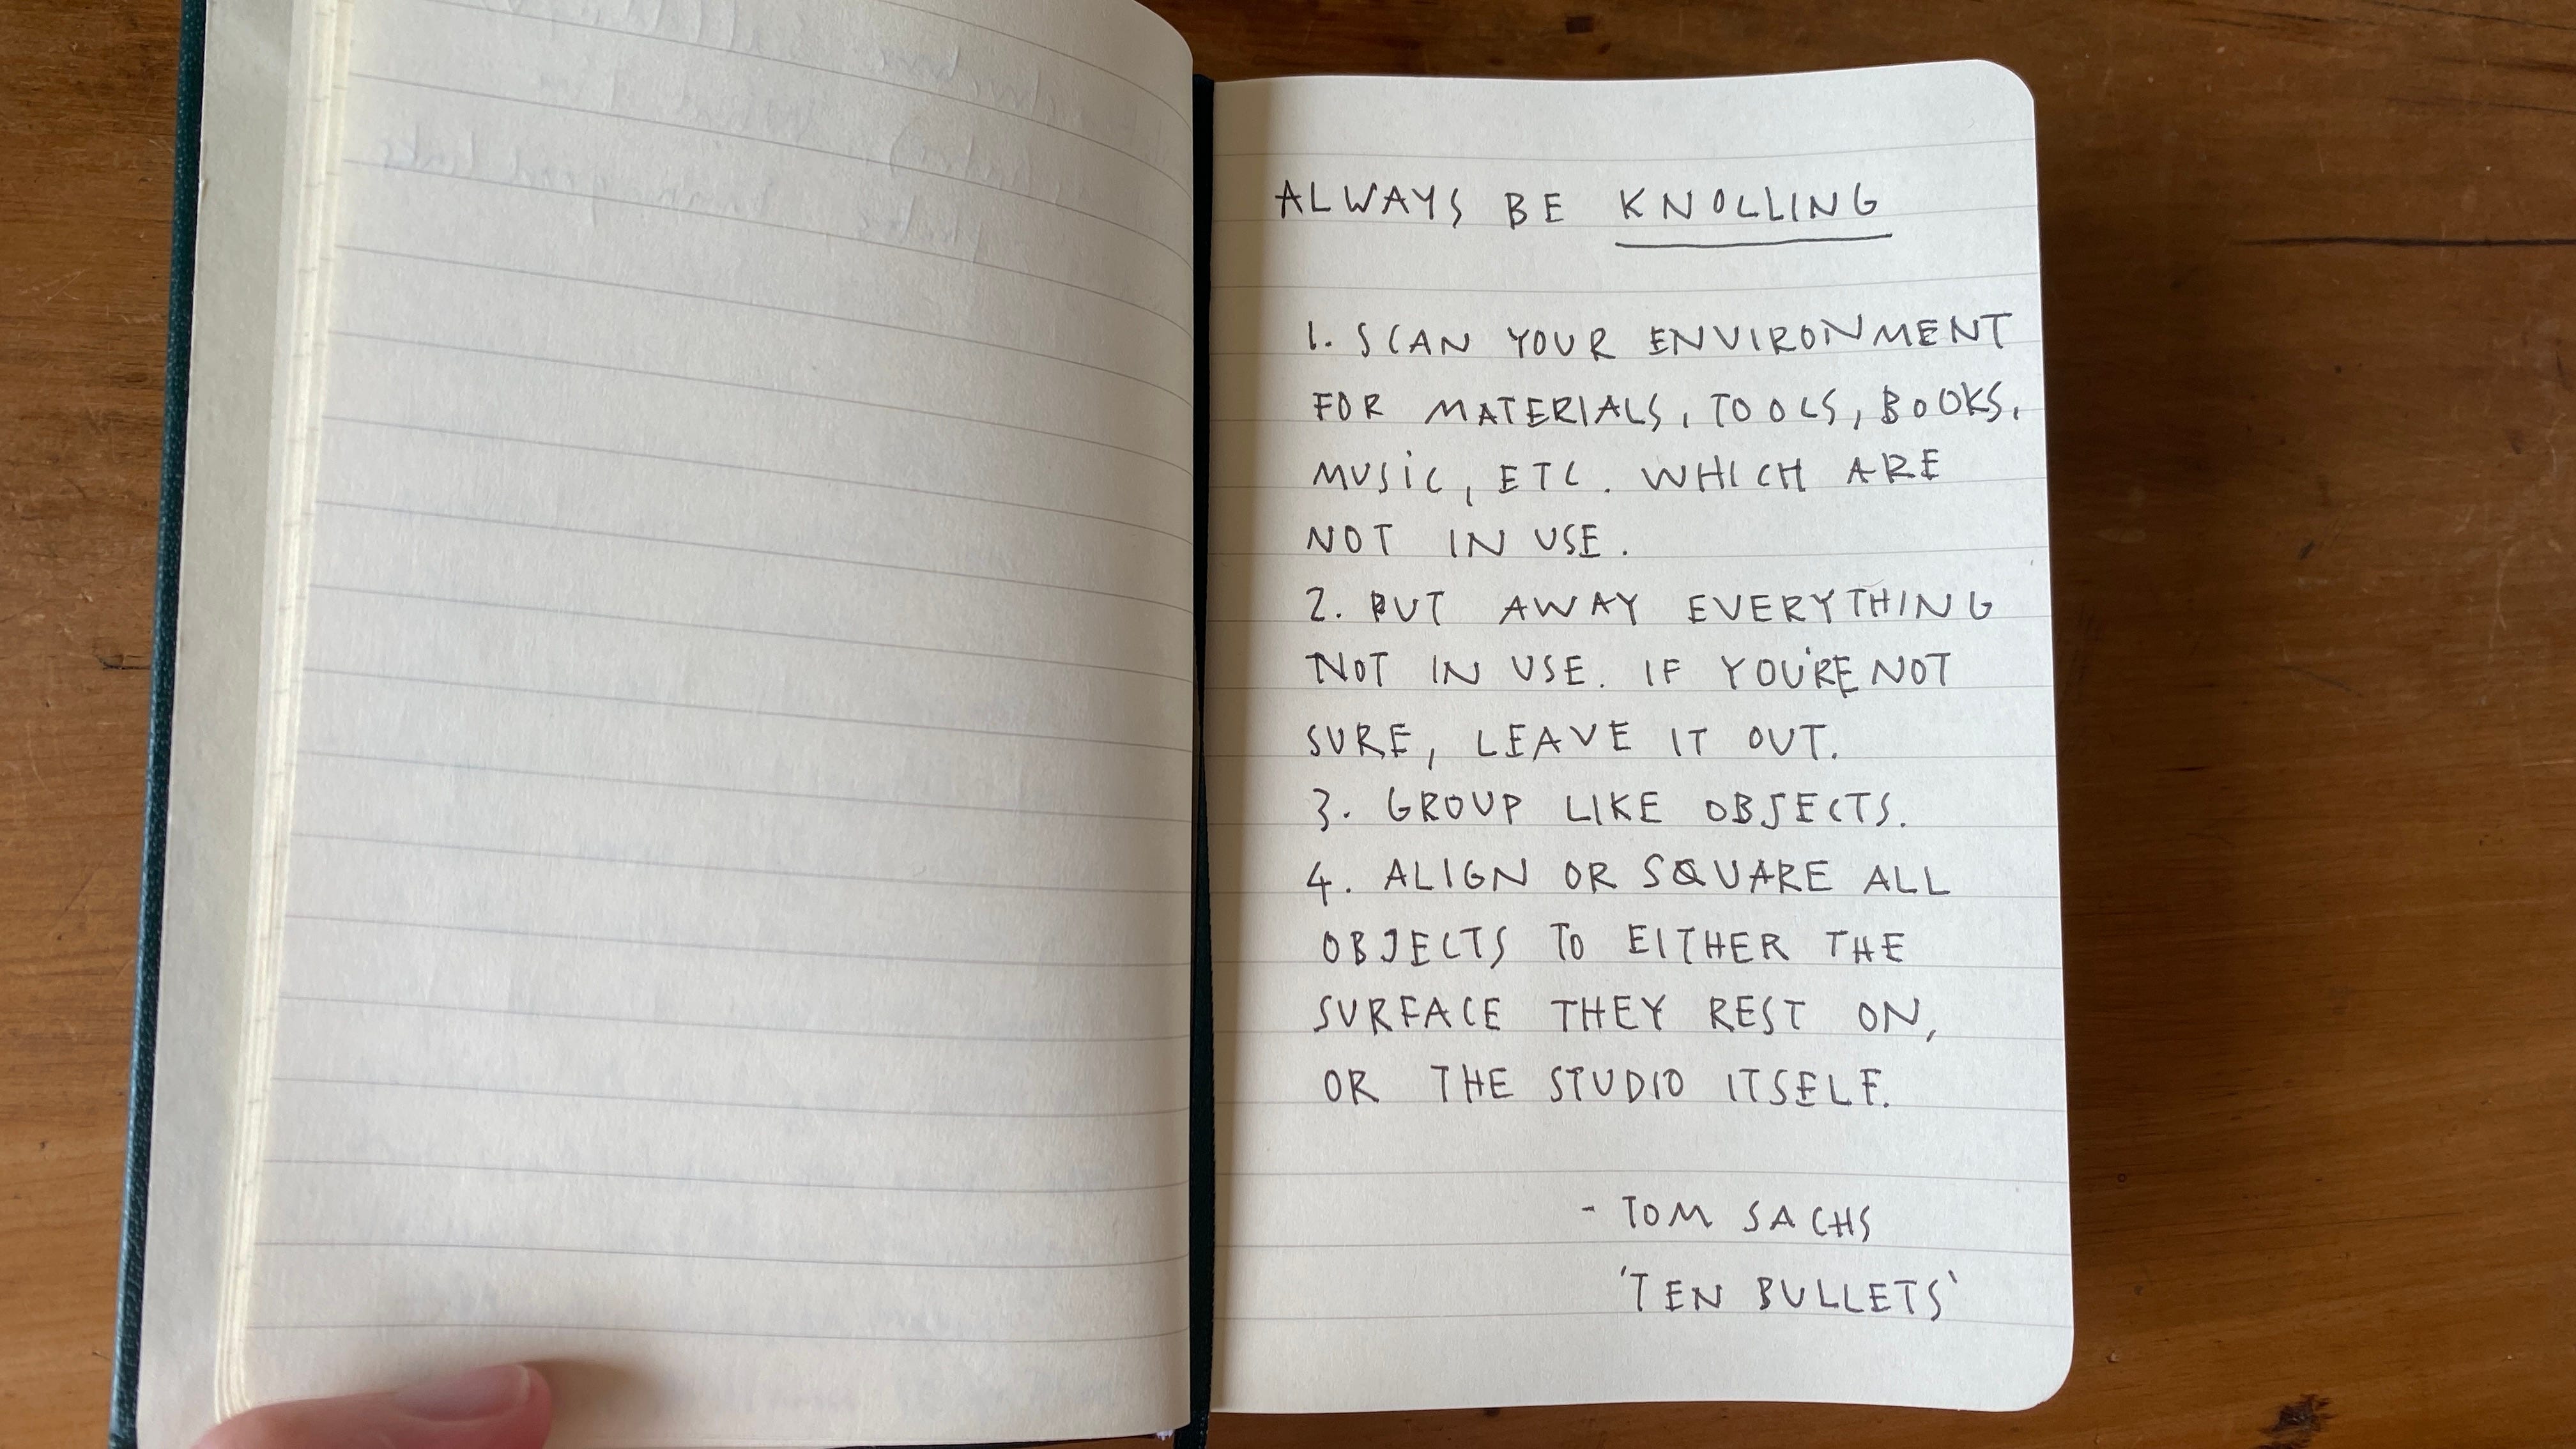 ALWAYS BE KNOLLING
1. SCAN YOUR ENVIRONMENT
FOR MATERIALS, TOOLS, BOOKS,
MUSIC, ETC. WHICH ARE
NOT IN USE.
2. PUT AWAY EVERYTHING
NOT IN USE. IF YOU'RE NOT
SURE, LEAVE IT OUT.
3. GROUP LIKE OBJECTS.
4. ALIGN OR SQUARE ALL
OBJECTS TO EITHER THE
SURFACE THEY REST ON,
OR THE STUDIO ITSELF.
- TOM SACHS
'TEN BULLETS'